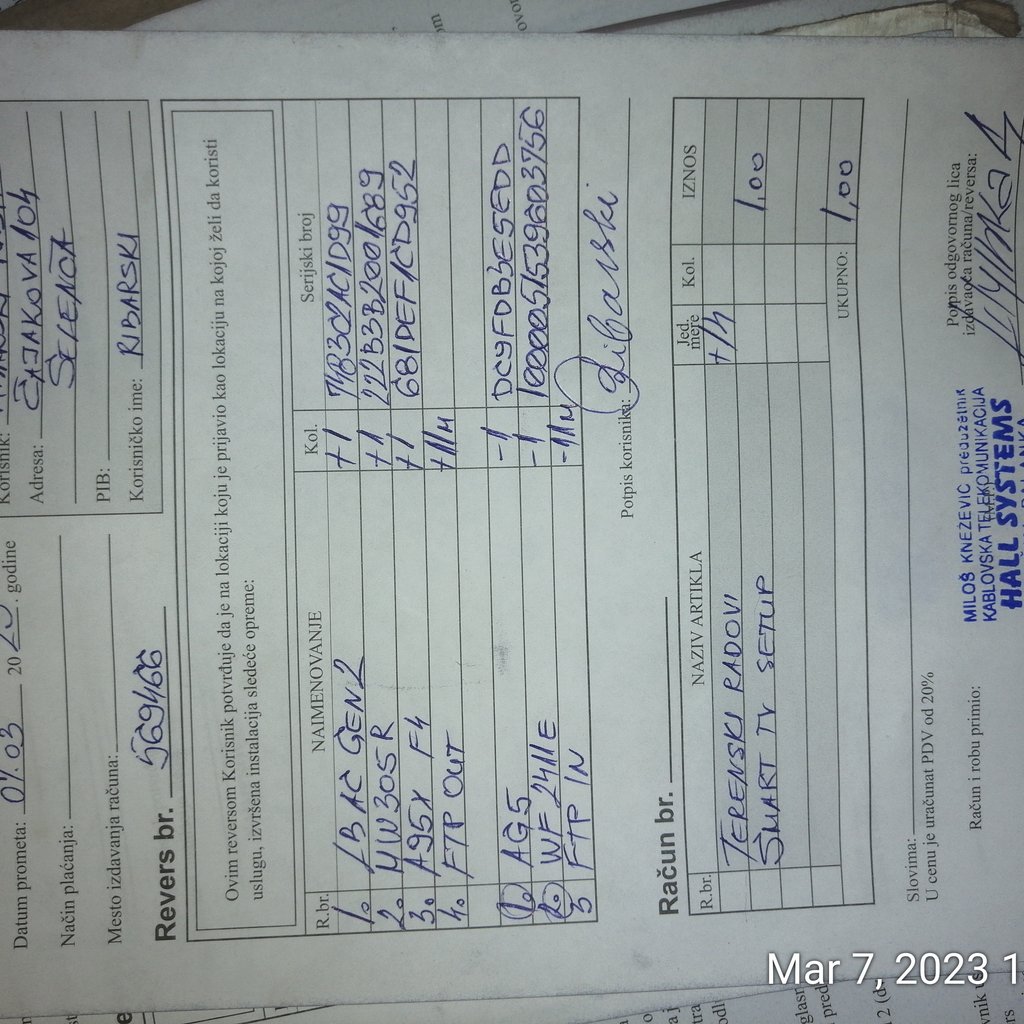 Korisnik:
Adresa: ČAJAKOVA 104
SELENČA
PIB:
Korisničko ime: RIBARSKI
Datum prometa: 07.03 20 23. godine
Način plaćanja:
Mesto izdavanja računa:
Revers br. 569466
Ovim reversom Korisnik potvrđuje da je na lokaciji koju je prijavio kao lokaciju na kojoj želi da koristi
uslugu, izvršena instalacija sledeće opreme:
R.br. NAIMENOVANJE Kol. Serijski broj
1. GEN2 +1
2. MW305R +1 222B3B2001689
3. A95X F4 +1 681DEF1CD952
4. FTP OUT +11M
1. AG5 -1 DC9FDB3E5EDD
2. WF2411E -1 1000051539603756
3 FTP IN -11M
Potpis korisnika: Ribarski
Račun br.
R.br. NAZIV ARTIKLA Jed. mere Kol. IZNOS
TERENSKI RADOVI +1h
SMART TV SETUP 1,00
UKUPNO: 1,00
Slovima:
U cenu je uračunat PDV od 20%
Račun i robu primio:
MILOŠ KNEŽEVIĆ preduzetnik
KABLOVSKA TELEKOMUNIKACIJA
HALL SYSTEMS
Potpis odgovornog lica
izdavaoca računa/reversa:
Mar 7, 2023 1